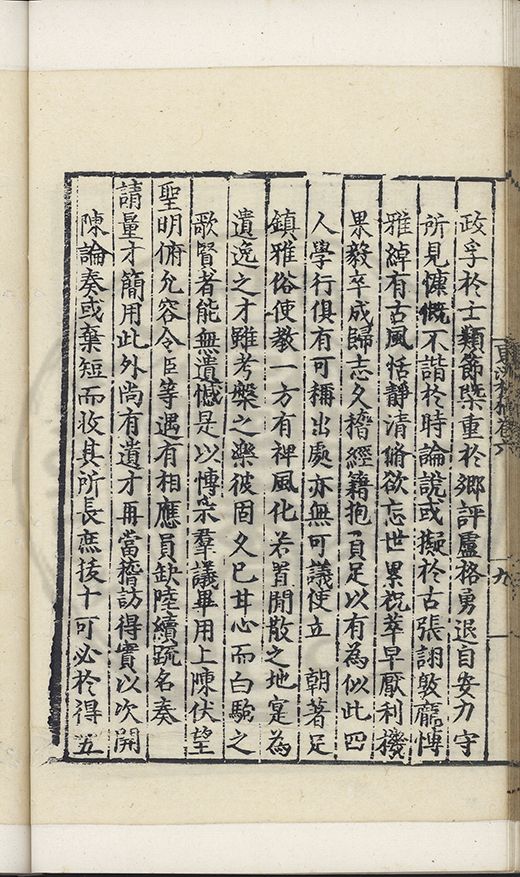 政孚於士類節槩重於鄉評盧格勇退自安力守
所見慷慨不諧於時論說或擬於古張詡敦龎愽
雅綽有古風恬靜清脩欲忘世累祝萃早厭利撥
果毅卒成歸志久稽經籍抱負足以有為似此四
人學行俱有可稱出處亦無可議使立　朝著足
鎮雅俗使教一方有裨風化若置閒散之地寔為
遺逸之才雖考槃之樂彼固久已甘心而白駒之
歌賢者能無遺憾是以愽采羣議畢用上陳伏望
聖明俯允容令臣等遇有相應員缺陸續疏名奏
請量才簡用此外尚有遺才再當稽訪得實以次開
陳論奏或棄短而收其所長庶拔十可必於得五
卷六
九